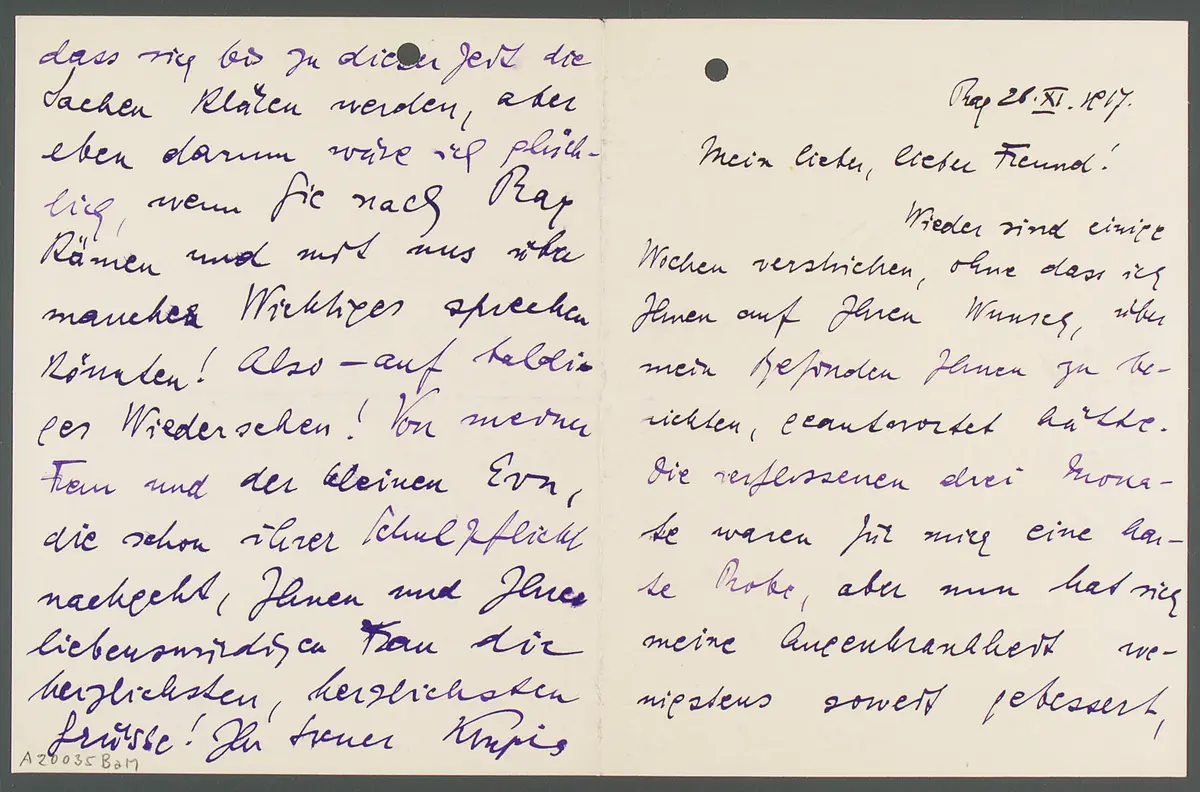 Prag 28. XI. 1917.
Mein lieber, lieber Freund!
Wieder sind einige
Wochen verstrichen, ohne dass ich
Ihnen auf Ihren Wunsch, über
mein Befinden Ihnen zu be-
richten, geantwortet hätte.
Die verflossenen drei Mona-
te waren für mich eine har-
te Probe, aber nun hat sich
meine Augenkrankheit we-
nigstens soweit gebessert,
dass sich bis zu dieser Zeit die
Sachen klären werden, aber
eben darum wäre ich glück-
lich, wenn Sie nach Prag
kämen und mit uns über
manches Wichtiges sprechen
könnten! Also – auf baldi-
ges Wiedersehen! Von meiner
Frau und der kleinen Eva,
die schon ihrer Schulpflicht
nachgeht, Ihnen und Ihrer
liebenswürdigen Frau die
herzlichsten, herzlichsten
Grüsse! Ihr treuer
A20035BaM